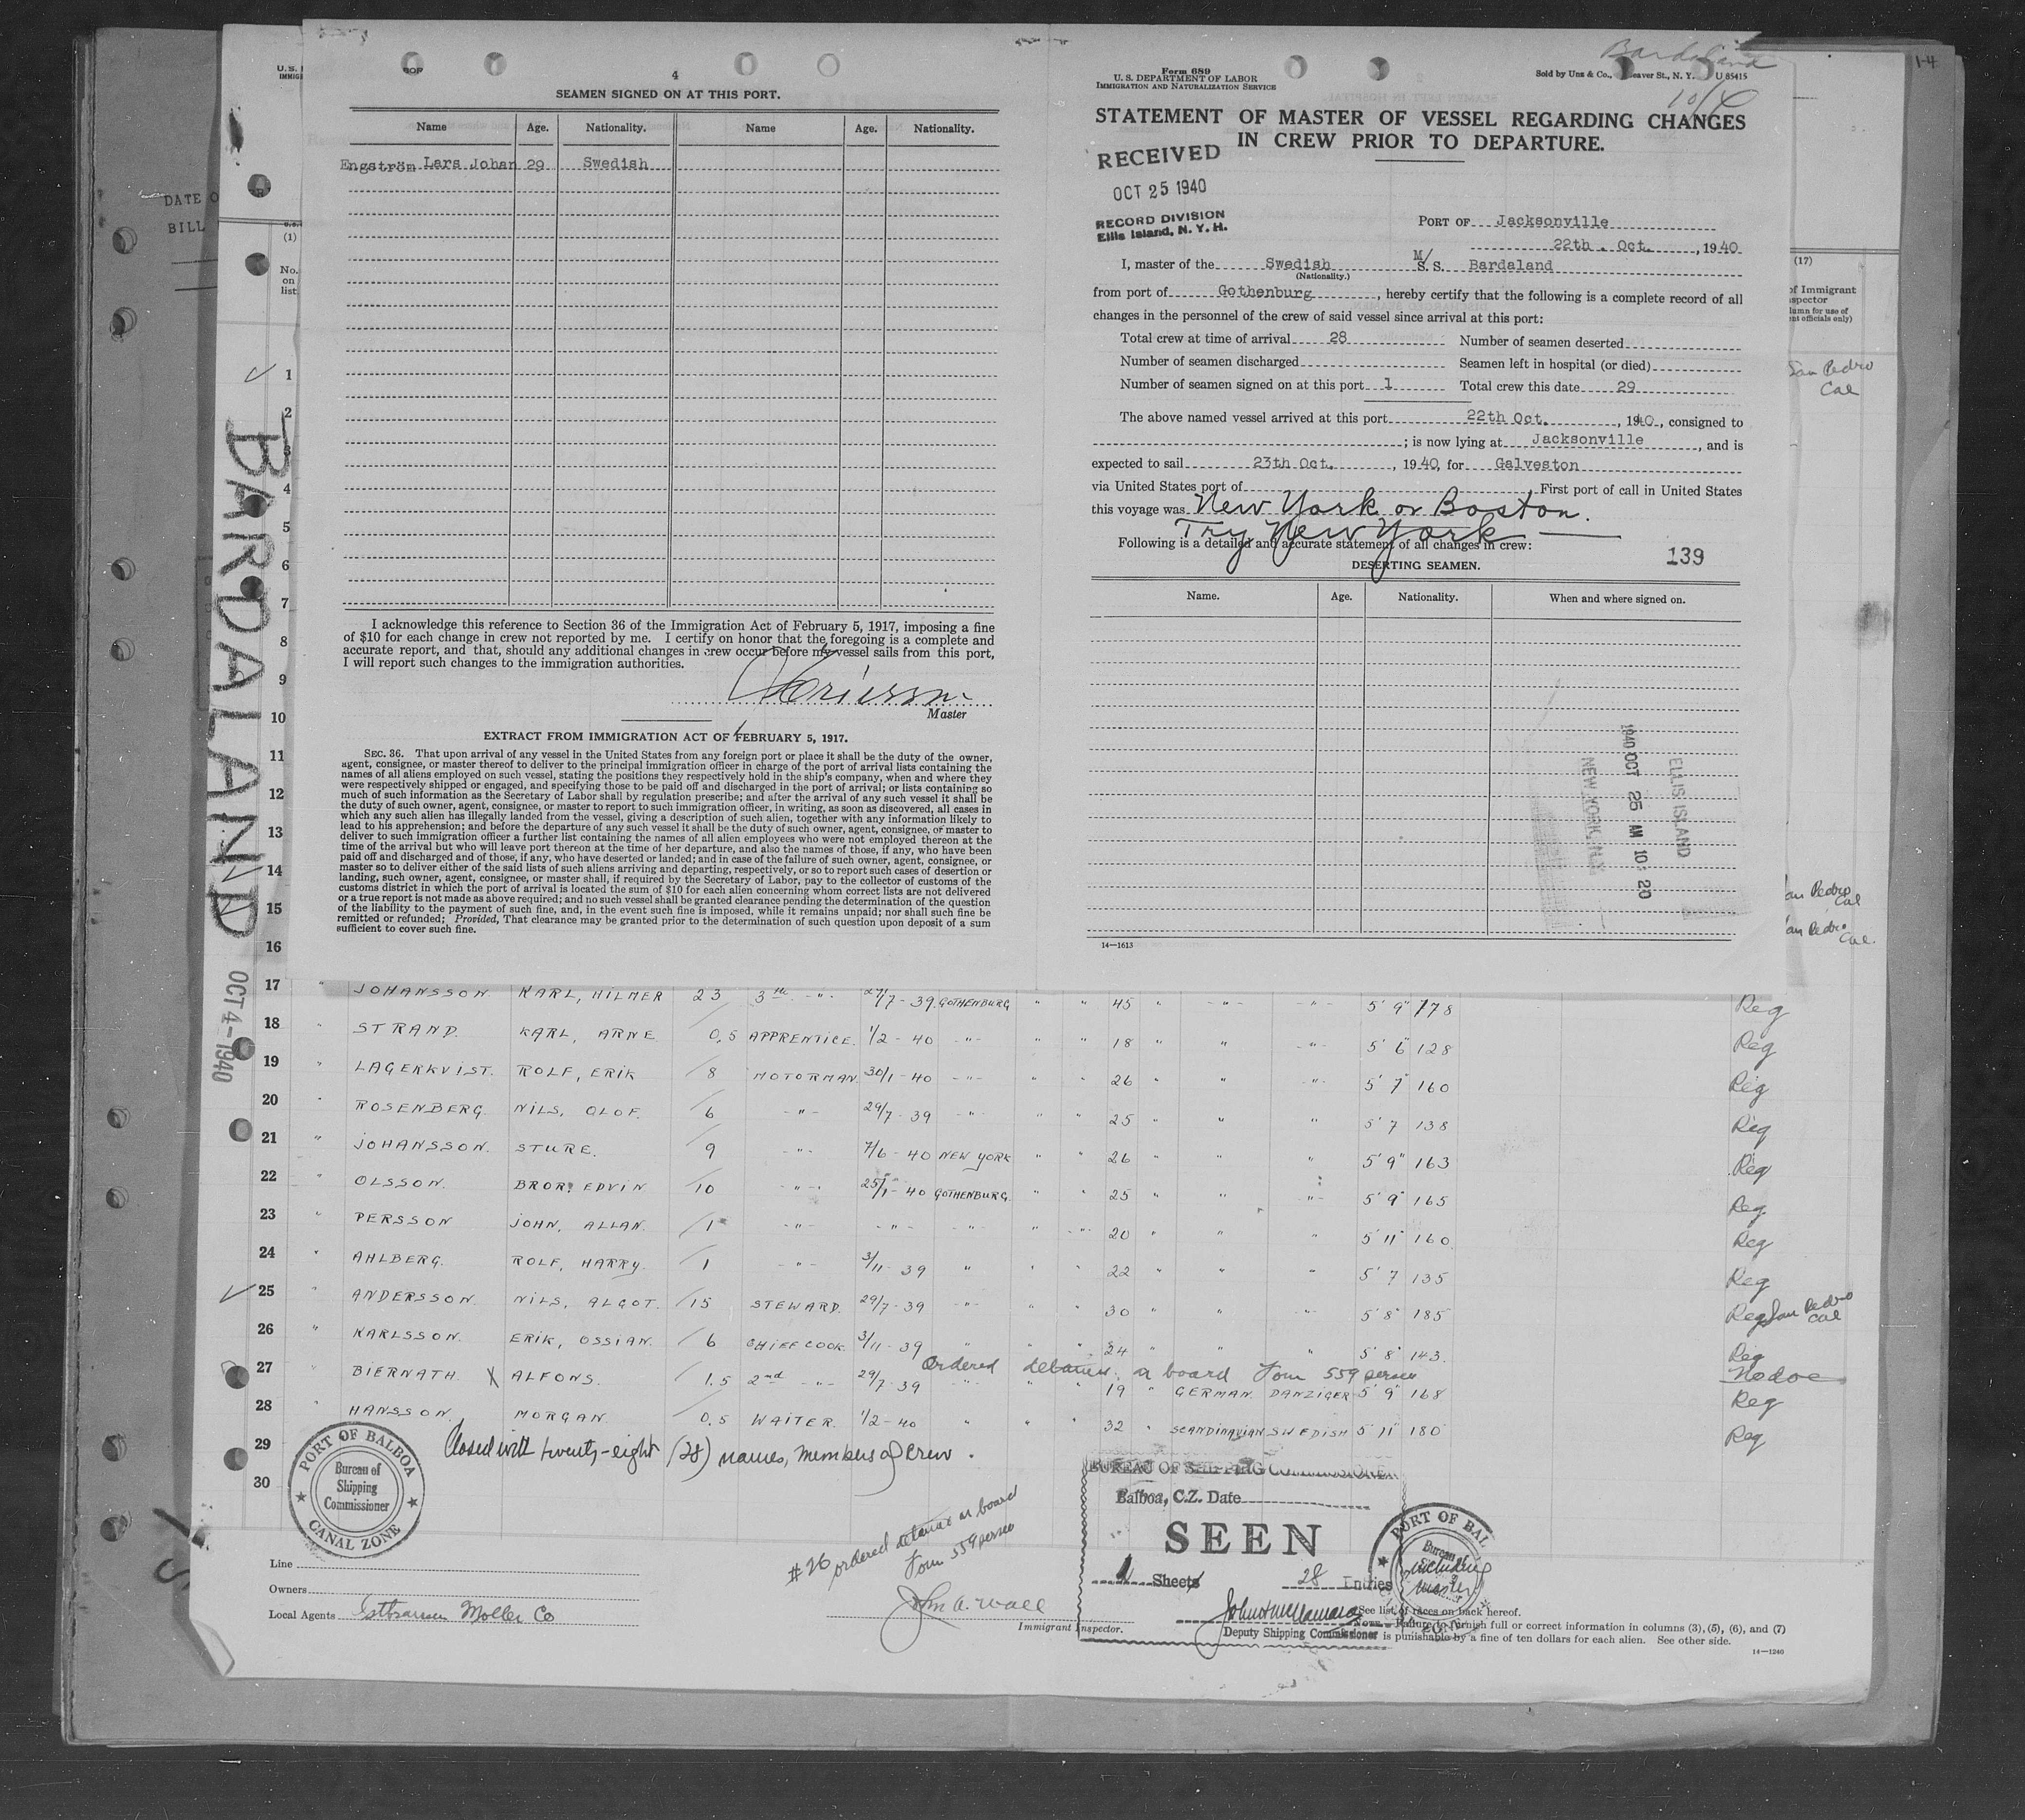 4
SEAMEN SIGNED ON AT THIS PORT.
Name Age. Nationality. Name Age. Nationality.
Engström Lars Johan 29 Swedish
I acknowledge this reference to Section 36 of the Immigration Act of February 5, 1917, imposing a fine
of $10 for each change in crew not reported by me. I certify on honor that the foregoing is a complete and
accurate report, and that, should any additional changes in crew occur before my vessel sails from this port,
I will report such changes to the immigration authorities.
Master
EXTRACT FROM IMMIGRATION ACT OF FEBRUARY 5, 1917.
SEC. 36. That upon arrival of any vessel in the United States from any foreign port or place it shall be the duty of the owner,
agent, consignee, or master thereof to deliver to the principal immigration officer in charge of the port of arrival lists containing the
names of all aliens employed on such vessel, stating the positions they respectively hold in the ship's company, when and where they
were respectively shipped or engaged, and specifying those to be paid off and discharged in the port of arrival; or lists containing so
much of such information as the Secretary of Labor shall by regulation prescribe; and after the arrival of any such vessel it shall be
the duty of such owner, agent, consignee, or master to report to such immigration officer, in writing, as soon as discovered, all cases in
which any such alien has illegally landed from the vessel, giving a description of such alien, together with any information likely to
lead to his apprehension; and before the departure of any such vessel it shall be the duty of such owner, agent, consignee, or master to
deliver to such immigration officer a further list containing the names of all alien employees who were not employed thereon at the
time of the arrival but who will leave port thereon at the time of her departure, and also the names of those, if any, who have been
paid off and discharged and of those, if any, who have deserted or landed; and in case of the failure of such owner, agent, consignee, or
master so to deliver either of the said lists of such aliens arriving and departing, respectively, or so to report such cases of desertion or
landing, such owner, agent, consignee, or master shall, if required by the Secretary of Labor, pay to the collector of customs of the
customs district in which the port of arrival is located the sum of $10 for each alien concerning whom correct lists are not delivered
or a true report is not made as above required; and no such vessel shall be granted clearance pending the determination of the question
of the liability to the payment of such fine, and, in the event such fine is imposed, while it remains unpaid; nor shall such fine be
remitted or refunded; Provided, That clearance may be granted prior to the determination of such question upon deposit of a sum
sufficient to cover such fine.
Bardaland
10/4
Form 689
U. S. DEPARTMENT OF LABOR
IMMIGRATION AND NATURALIZATION SERVICE
Sold by Unz & Co., eaver St., N. Y. U 85415
STATEMENT OF MASTER OF VESSEL REGARDING CHANGES
IN CREW PRIOR TO DEPARTURE.
RECEIVED
OCT 25 1940
RECORD DIVISION
Ellis Island, N. Y. H.
PORT OF Jacksonville
22th . Oct. , 1940
I, master of the Swedish M/ S. S. Bardaland
(Nationality.)
from port of Gothenburg , hereby certify that the following is a complete record of all
changes in the personnel of the crew of said vessel since arrival at this port:
Total crew at time of arrival 28 Number of seamen deserted
Number of seamen discharged Seamen left in hospital (or died)
Number of seamen signed on at this port 1 Total crew this date 29
The above named vessel arrived at this port 22th Oct. , 1940, consigned to
; is now lying at Jacksonville , and is
expected to sail 23th Oct. , 1940, for Galveston
via United States port of First port of call in United States
this voyage was New York or Boston.
Try New York
Following is a detailed and accurate statement of all changes in crew:
139
DESERTING SEAMEN.
Name. Age. Nationality. When and where signed on.
ELLIS ISLAND
1940 OCT 25 AM 10:20
NEW YORK, N.Y.
14—1613
DATE O
BILL
U. S.
IMMIG
(1)
No.
on
list
1
2
3
4
5
6
7
8
9
10
11
12
13
14
15
16
BARDALAND
OCT 4-1940
1-4
(17)
of Immigrant
spector
lumn for use of
ent officials only)
San Pedro
Cal
an Pedro
Cal
an Pedro
Cal.
17 " JOHANSSON KARL, HILMER 23 3th -"- 27/7-39 GOTHENBURG " " 45 " -"- -"- 5' 9" 178 Reg
18 " STRAND. KARL, ARNE 0,5 APPRENTICE. 1/2-40 -"- " " 18 " " -"- 5' 6" 128 Reg
19 " LAGERKVIST. ROLF, ERIK 8 MOTORMAN. 30/1-40 -"- " " 26 " " -"- 5' 7" 160 Reg
20 " ROSENBERG. NILS, OLOF. 6 -"- 29/7-39 -"- " " 25 " " " 5' 7 138 Reg
21 " JOHANSSON. STURE. 9 -"- 7/6-40 NEW YORK " " 26 " " " 5' 9" 163 Reg
22 " OLSSON. BROR, EDVIN 10 -"- 25/1-40 GOTHENBURG. " " 25 " " "- 5' 9" 165 Reg
23 " PERSSON JOHN, ALLAN. 1 -"- -"- -"- " -"- 20 " " " 5' 11" 160 Reg
24 " AHLBERG. ROLF, HARRY. 1 -"- 3/11-39 " " " 22 " " " 5' 7 135 Reg
25 " ANDERSSON. NILS, ALGOT. 15 STEWARD. 29/7-39 -"- " " 30 " " -"- 5' 8" 185 Reg San Pedro Cal
26 " KARLSSON. ERIK, OSSIAN. 6 CHIEF COOK. 3/11-39 " " " 24 " " " 5' 8" 143. Reg
Ordered detained a board Form 559
27 " BIERNATH X ALFONS. 1.5 2nd -"- 29/7-39 -"- " " 19 " GERMAN. DANZIGER 5' 9" 168 Reg
28 " HANSSON. MORGAN. 0.5 WAITER. 1/2-40 " " " 32 " SCANDINAVIAN SWEDISH 5' 11" 180 Reg
29
Closed with twenty-eight (28) names, members of crew.
30
PORT OF BALBOA
Bureau of
Shipping
Commissioner
CANAL ZONE
#26 ordered detained on board
Form 559
John A. Wall
Immigrant Inspector.
Line
Owners
Local Agents
BUREAU OF SHIPPING COMMISSIONER
Balboa, C.Z. Date
SEEN
1 Sheets 28 Entries
including
master
PORT OF BAL
Bureau of
Deputy Shipping Commissioner
See list of races on back hereof.
NOTE.—Failure to furnish full or correct information in columns (3), (5), (6), and (7)
is punishable by a fine of ten dollars for each alien. See other side.
14—1240